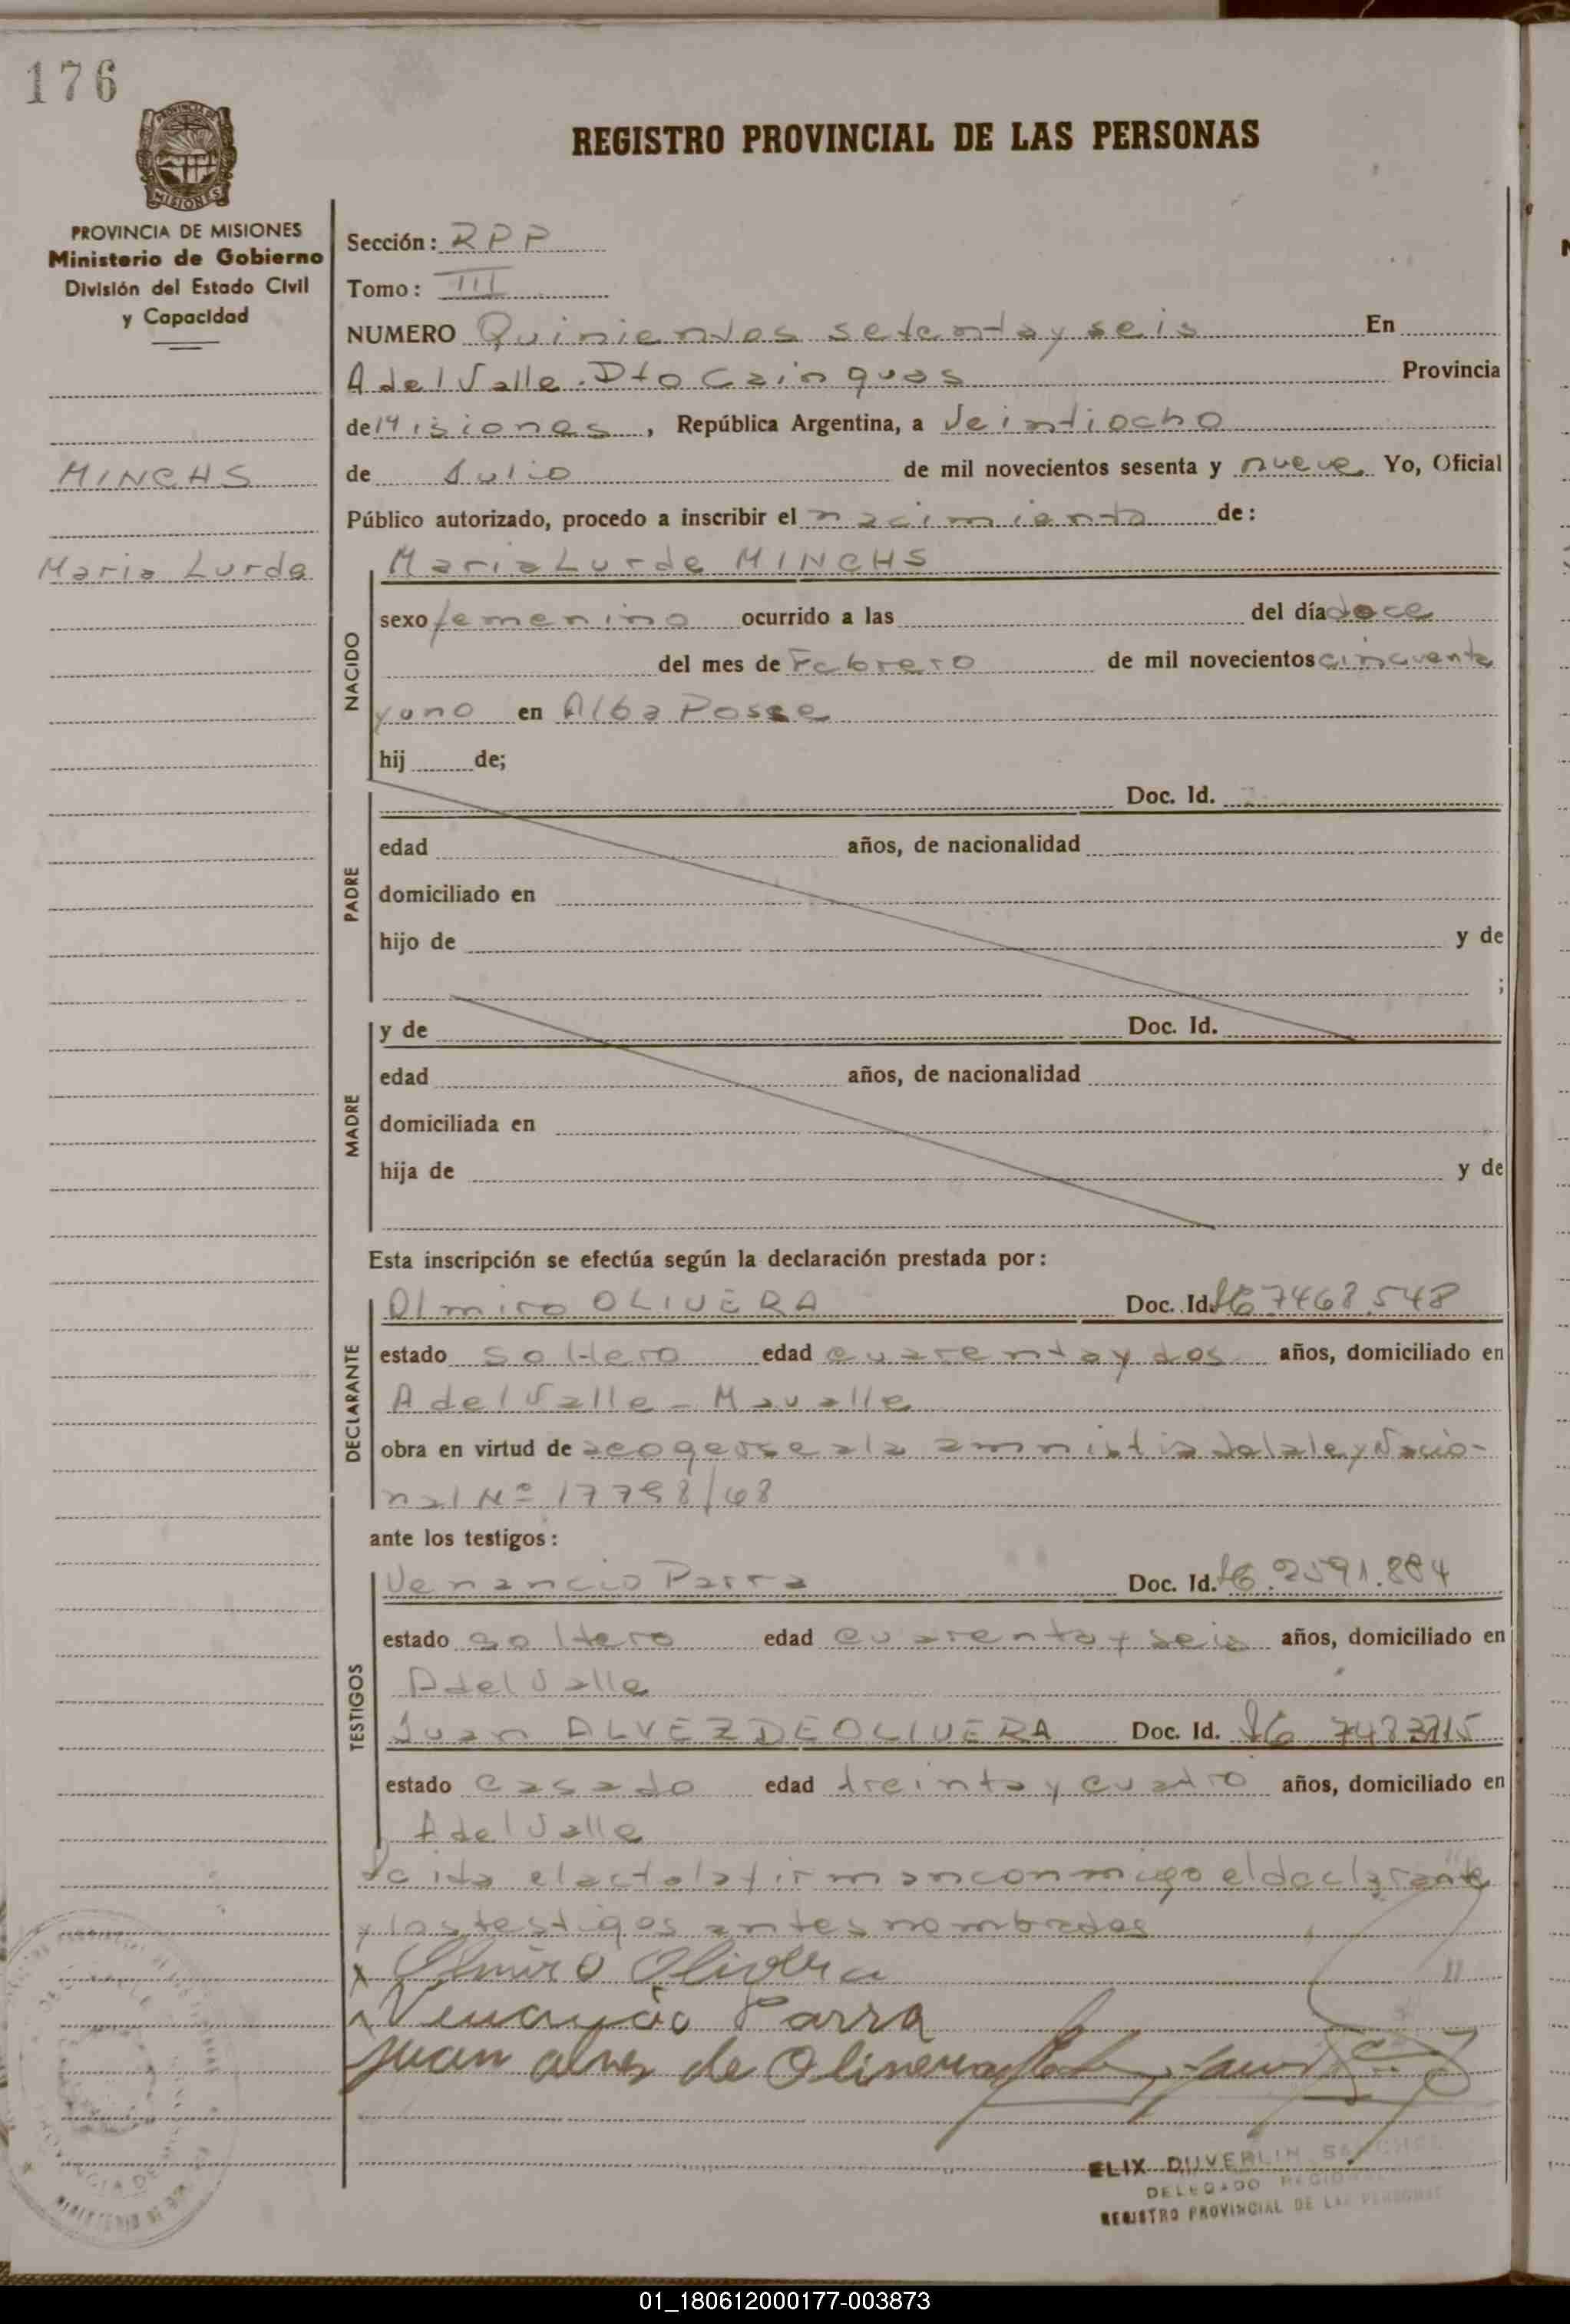 176
REGISTRO PROVINCIAL DE LAS PERSONAS
MISIONES
PROVINCIA DE MISIONES
Ministerio de Gobierno
División del Estado Civil
y Capacidad
MINCHS
Maria Lurde
Sección: RPP
Tomo: III
NUMERO Quinientos setenta y seis En
A del Valle. Dto Cainguas Provincia
de Misiones, República Argentina, a Veintiocho
de Julio de mil novecientos sesenta y nueve Yo, Oficial
Público autorizado, procedo a inscribir el nacimiento de:
Maria Lurde MINCHS
NACIDO
sexo femenino ocurrido a las del día doce
del mes de Febrero de mil novecientos cincuenta
y uno en Alba Posse
hij de;
PADRE
Doc. Id.
edad años, de nacionalidad
domiciliado en
hijo de y de
;
MADRE
y de Doc. Id.
edad años, de nacionalidad
domiciliada en
hija de y de
Esta inscripción se efectúa según la declaración prestada por:
DECLARANTE
Almiro OLIVERA Doc. Id. 7468.548
estado soltero edad cuarenta y dos años, domiciliado en
A del Valle - Mavalle
obra en virtud de acogerse a la amnistia de la ley Nacio-
nal Nº 17798/68
ante los testigos:
TESTIGOS
Venancio Parra Doc. Id. 2591.884
estado soltero edad cuarenta y seis años, domiciliado en
A del Valle
Juan ALVEZ DE OLIVERA Doc. Id.
estado casado edad treinta y cuatro años, domiciliado en
A del Valle
Leida el acta la firman conmigo el declarante
y los testigos antes nombrados
x Almiro Olivera
Venancio Parra
Juan alves de Olivera
ELIX DUVERLIN SANCHEZ
DELEGADO REGIONAL
REGISTRO PROVINCIAL DE LAS PERSONAS
01_180612000177-003873